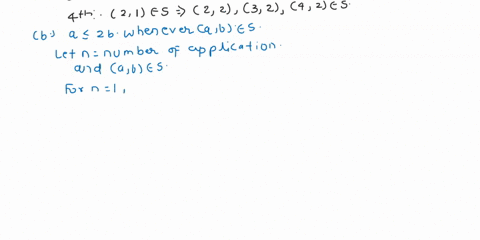 4th: (2,1) ∈ S ⇒ (2,2), (3,2), (4,2) ∈ S.
(b) a ≤ 2b whenever (a,b) ∈ S.
Let n = number of application
and (a,b) ∈ S.
For n = 1,